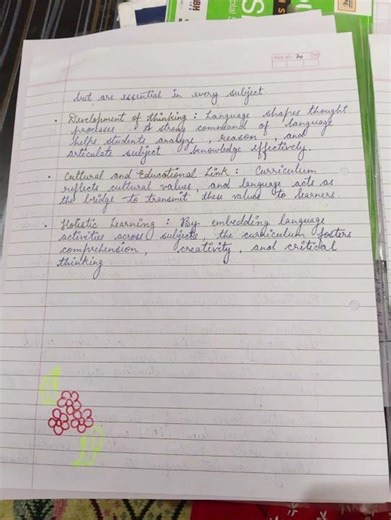 but are essential in every subject
• Development of thinking : Language shapes thought
processes. A strong command of language
helps students analyze , reason , and
articulate subject knowledge effectively.
• Cultural and Educational Link : Curriculum
reflects cultural values, and language acts as
the bridge to transmit these values to learners
• Holistic Learning : By embedding language
activities across subjects, the curriculum fosters
comprehension , creativity , and critical
thinking